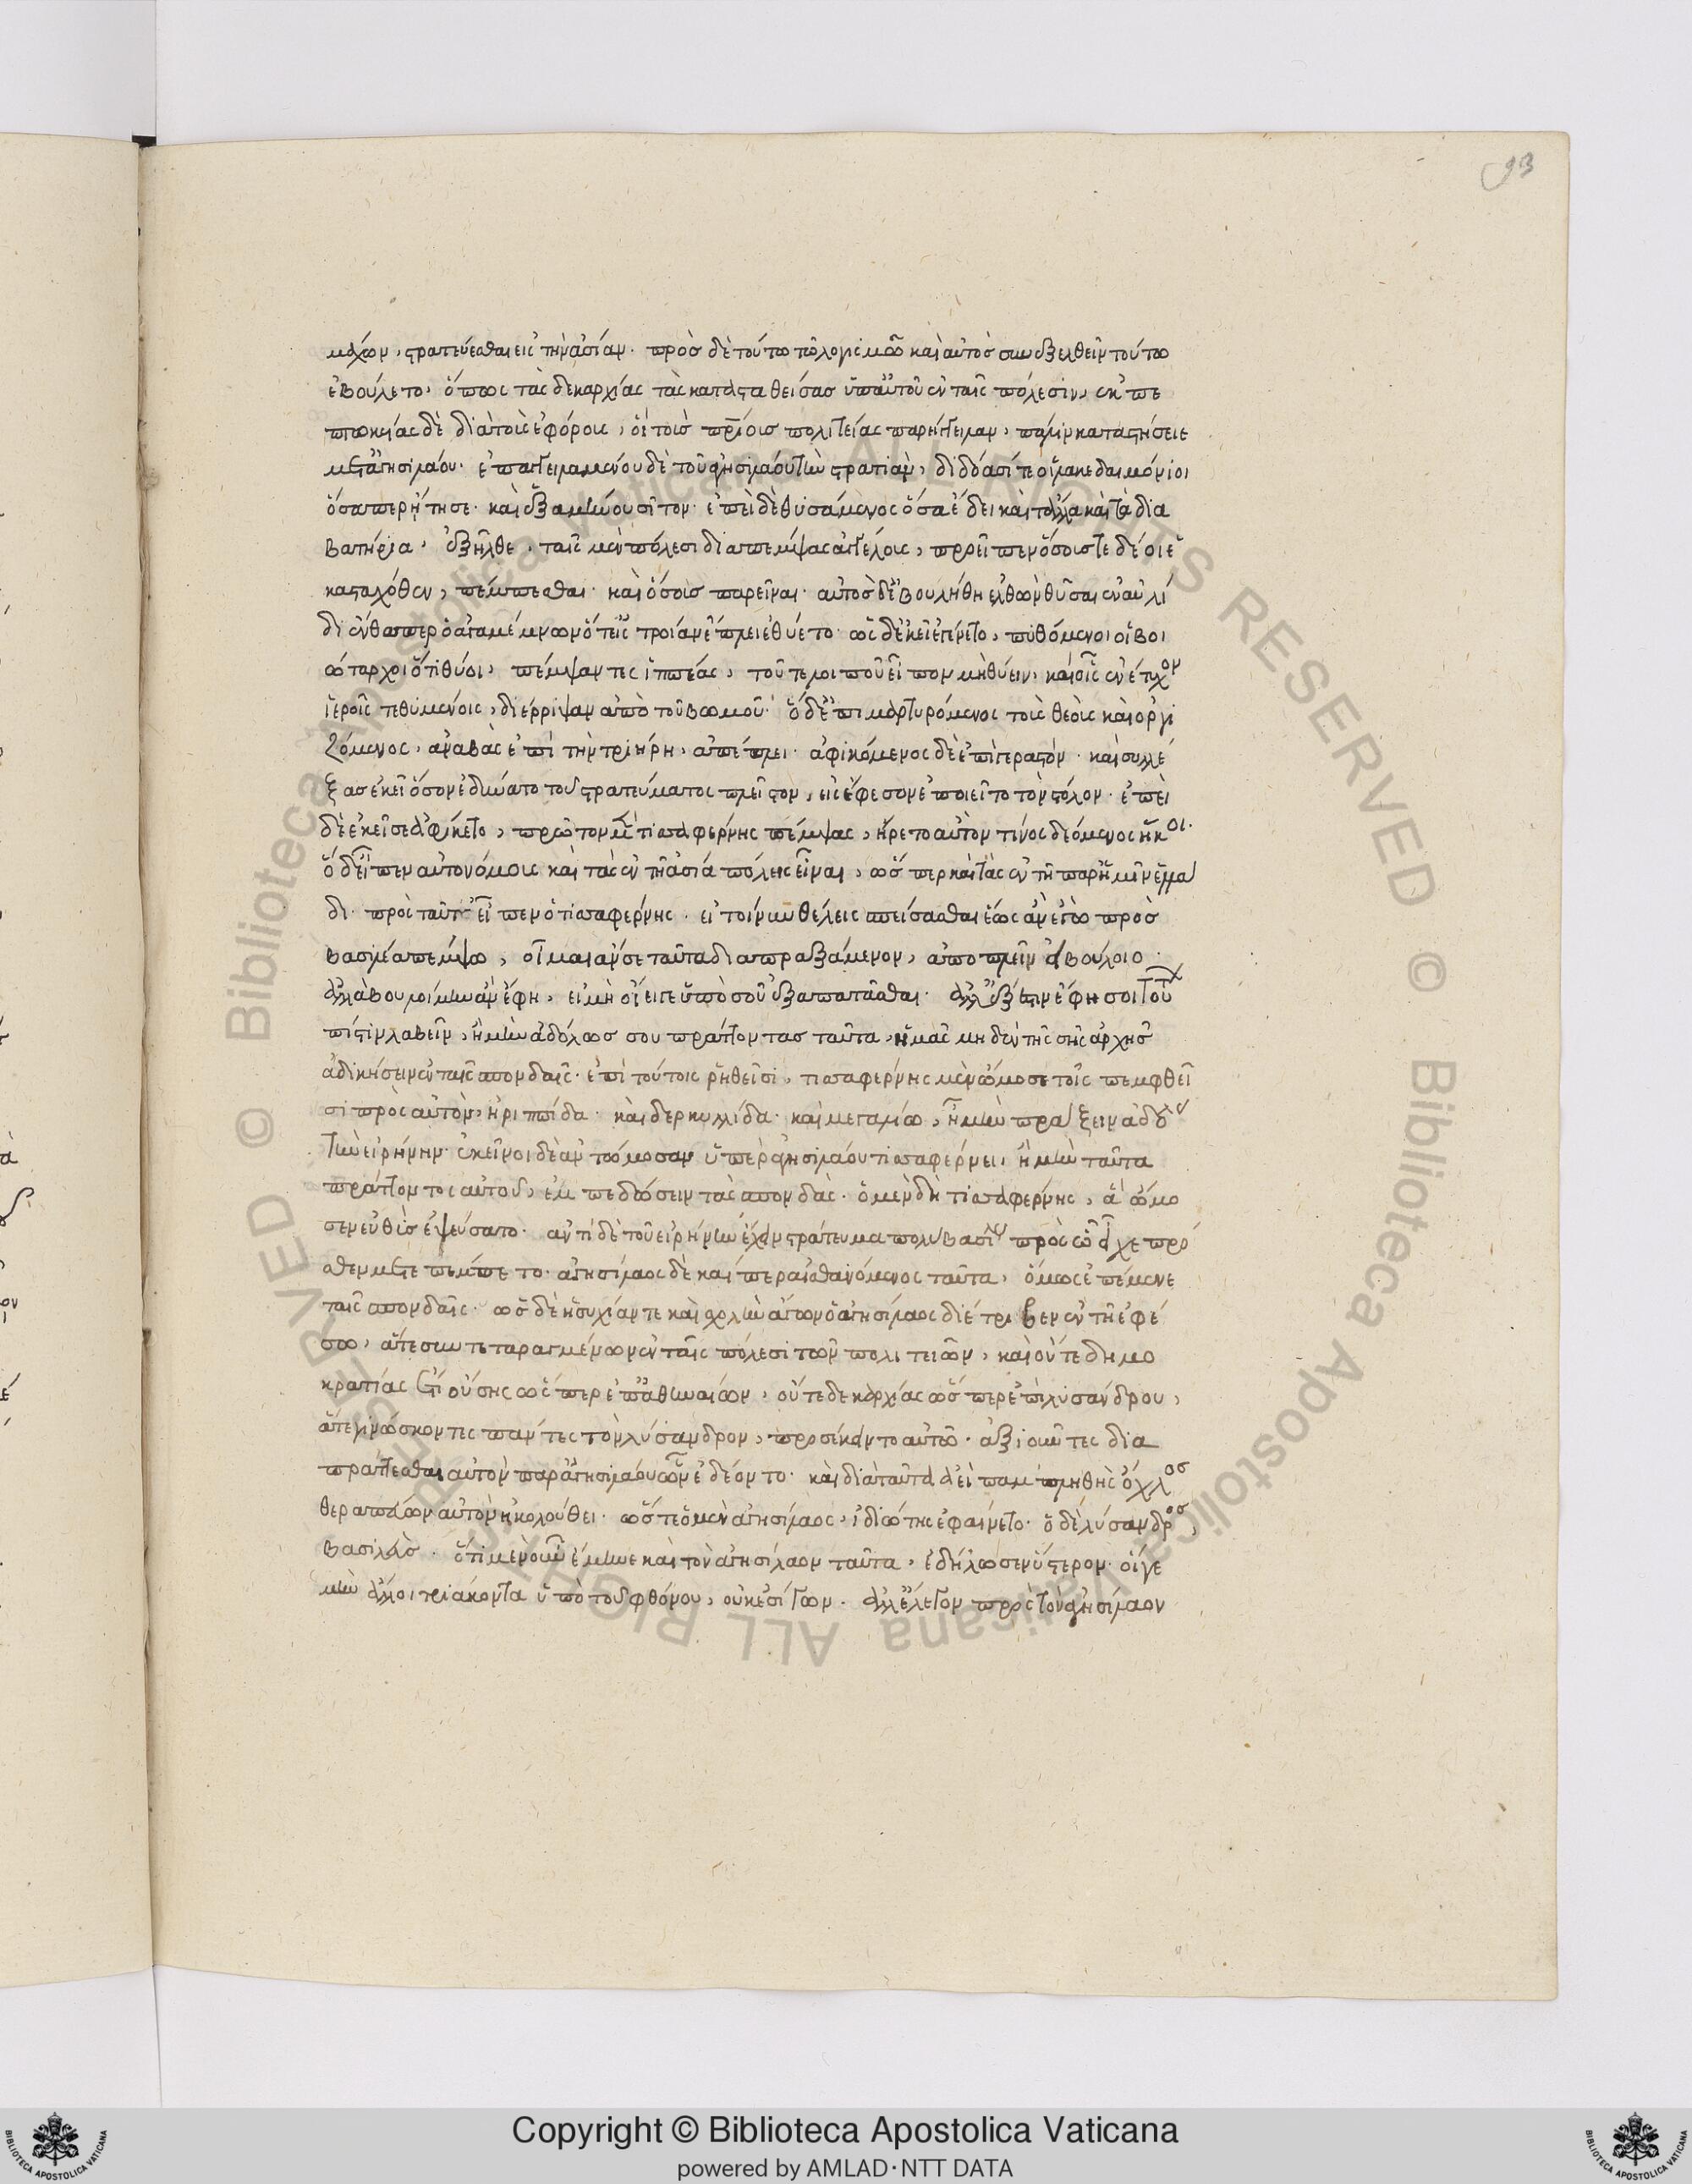 93
μάχων, στρατεύεσθαι εἰς τὴν ἀσίαν. πρὸς δὲ τούτω τῶ λογισμῶ καὶ αὐτὸς συνεξελθεῖν τούτω
ἐβούλετο, ὅπως τὰς δεκαρχίας τὰς κατασταθείσας ὑπ' αὐτοῦ ἐν ταῖς πόλεσιν, ἐκπε
πτωκυίας δὲ διὰ τοὺς ἐφόρους, οἳ τὰς πατρίους πολιτείας παρήγγειλαν, πάλιν καταστήσειε
μετ' ἀγησιλάου. ἐπαγγειλαμένου δὲ τοῦ ἀγησιλάου τὴν στρατιὰν, διδόασί τε οἱ λακεδαιμόνιοι
ὅσαπερ ἤτησε. καὶ ἑξαμήνου σῖτον. ἐπεὶ δὲ θυσάμενος ὅσα ἔδει καὶ τἄλλα καὶ τὰ δια
βατήρια, ἐξῆλθε, ταῖς μὲν πόλεσι διαπέμψας ἀγγέλους, προεῖπεν ὅσους τε δέοι ἑ
κασταχόθεν, πέμπεσθαι. καὶ ὅποι παρεῖναι. αὐτὸς δ' ἐβουλήθη ἐλθὼν θῦσαι ἐν αὐλί
δι ἔνθαπερ ὁ ἀγαμέμνων ὅτ' εἰς τροίαν ἔπλει ἐθύετο. ὡς δ' ἐκεῖ ἐγένετο, πυθόμενοι οἱ βοι
ώταρχοι ὅτι θύοι, πέμψαντες ἱππέας, τοῦ τε λοιποῦ εἶπον μὴ θύειν, καὶ οἷς ἐνέτυχον
ἱεροῖς τεθυμένοις, διέρριψαν ἀπὸ τοῦ βωμοῦ. ὁ δ' ἐπιμαρτυρόμενος τοὺς θεοὺς καὶ ὀργι
ζόμενος, ἀναβὰς ἐπὶ τὴν τριήρη, ἀπέπλει. ἀφικόμενος δὲ ἐπὶ γεραστὸν. καὶ συλλέ
ξας ἐκεῖ ὅσον ἐδύνατο τοῦ στρατεύματος πλεῖστον, εἰς ἔφεσον ἐποιεῖτο τὸν στόλον. ἐπεὶ
δὲ ἐκεῖσε ἀφίκετο, πρῶτον μὲν τισσαφέρνης πέμψας, ἤρετο αὐτὸν τίνος δεόμενος ἥκοι.
ὁ δ' εἶπεν αὐτονόμους καὶ τὰς ἐν τῆ ἀσία πόλεις εἶναι, ὥσπερ καὶ τὰς ἐν τῆ παρ' ἡμῖν ἑλλά
δι. πρὸς ταῦτ' εἶπεν ὁ τισσαφέρνης. εἰ τοίνυν θέλεις σπείσασθαι ἕως ἂν ἐγὼ πρὸς
βασιλέα πέμψω, οἶμαι ἄν σε ταῦτα διαπραξάμενον, ἀποπλεῖν εἰ βούλοιο.
ἀλλὰ βουλοίμην ἂν ἔφη, εἰ μὴ οἰοίμην γε ὑπὸ σοῦ ἐξαπατᾶσθαι. ἀλλ' ἔξεστιν ἔφη σοι τούτων
πίστιν λαβεῖν, ἦ μὴν ἀδόλως σου πράττοντος ταῦτα, ἡμᾶς μηδὲν τῆς σῆς ἀρχῆς
ἀδικήσειν ἐν ταῖς σπονδαῖς. ἐπὶ τούτοις ῥηθεῖσι, τισσαφέρνης μὲν ὤμοσε τοῖς πεμφθεῖ
σι πρὸς αὐτὸν, ἡριππίδα. καὶ δερκυλλίδα. καὶ μεγαλίω, ἦ μὴν πράξειν ἀδόλως
τὴν εἰρήνην. ἐκεῖνοι δὲ ἀντώμοσαν ὑπὲρ ἀγησιλάου τισσαφέρνει, ἦ μὴν ταῦτα
πράττοντος αὐτοῦ, ἐμπεδώσειν τὰς σπονδὰς. ὁ μὲν δὴ τισσαφέρνης, ἃ ὤμο
σεν εὐθὺς ἐψεύσατο. ἀντὶ δὲ τοῦ εἰρήνην ἔχειν στράτευμα πολὺ βασιλέως πρὸς ὧ εἶχε πρό
σθεν μετεπέμπετο. ἀγησίλαος δὲ καίπερ αἰσθανόμενος ταῦτα, ὅμως ἐπέμενε
ταῖς σπονδαῖς. ὡς δὲ ἡσυχίαν τε καὶ σχολὴν ἄγων ὁ ἀγησίλαος διέτριβεν ἐν τῆ ἐφέ
σω, ἅτε συντεταραγμένων ἐν ταῖς πόλεσι τῶν πολιτειῶν, καὶ οὔτε δημο
κρατίας ἔτι οὔσης ὥσπερ ἐπ' ἀθηναίων, οὔτε δεκαρχίας ὥσπερ ἐπὶ λυσάνδρου,
ἅτε γινώσκοντες πάντες τὸν λύσανδρον, προσέκειντο αὐτῶ. ἀξιοῦντες δια
πράττεσθαι αὐτὸν παρ' ἀγησιλάου ὧν ἐδέοντο. καὶ διὰ ταῦτα ἀεὶ παμπληθὴς ὄχλος
θεραπεύων αὐτὸν ἠκολούθει. ὥστε ὁ μὲν ἀγησίλαος, ἰδιώτης ἐφαίνετο. ὁ δὲ λύσανδρος,
βασιλεὺς. ὅτι μὲν οὖν ἔμηνε καὶ τὸν ἀγησίλαον ταῦτα, ἐδήλωσεν ὕστερον. οἵ γε
μὴν ἄλλοι τριάκοντα ὑπὸ τοῦ φθόνου, οὐκ ἐσίγων. ἀλλ' ἔλεγον πρὸς τὸν ἀγησίλαον
Copyright © Biblioteca Apostolica Vaticana
powered by AMLAD·NTT DATA